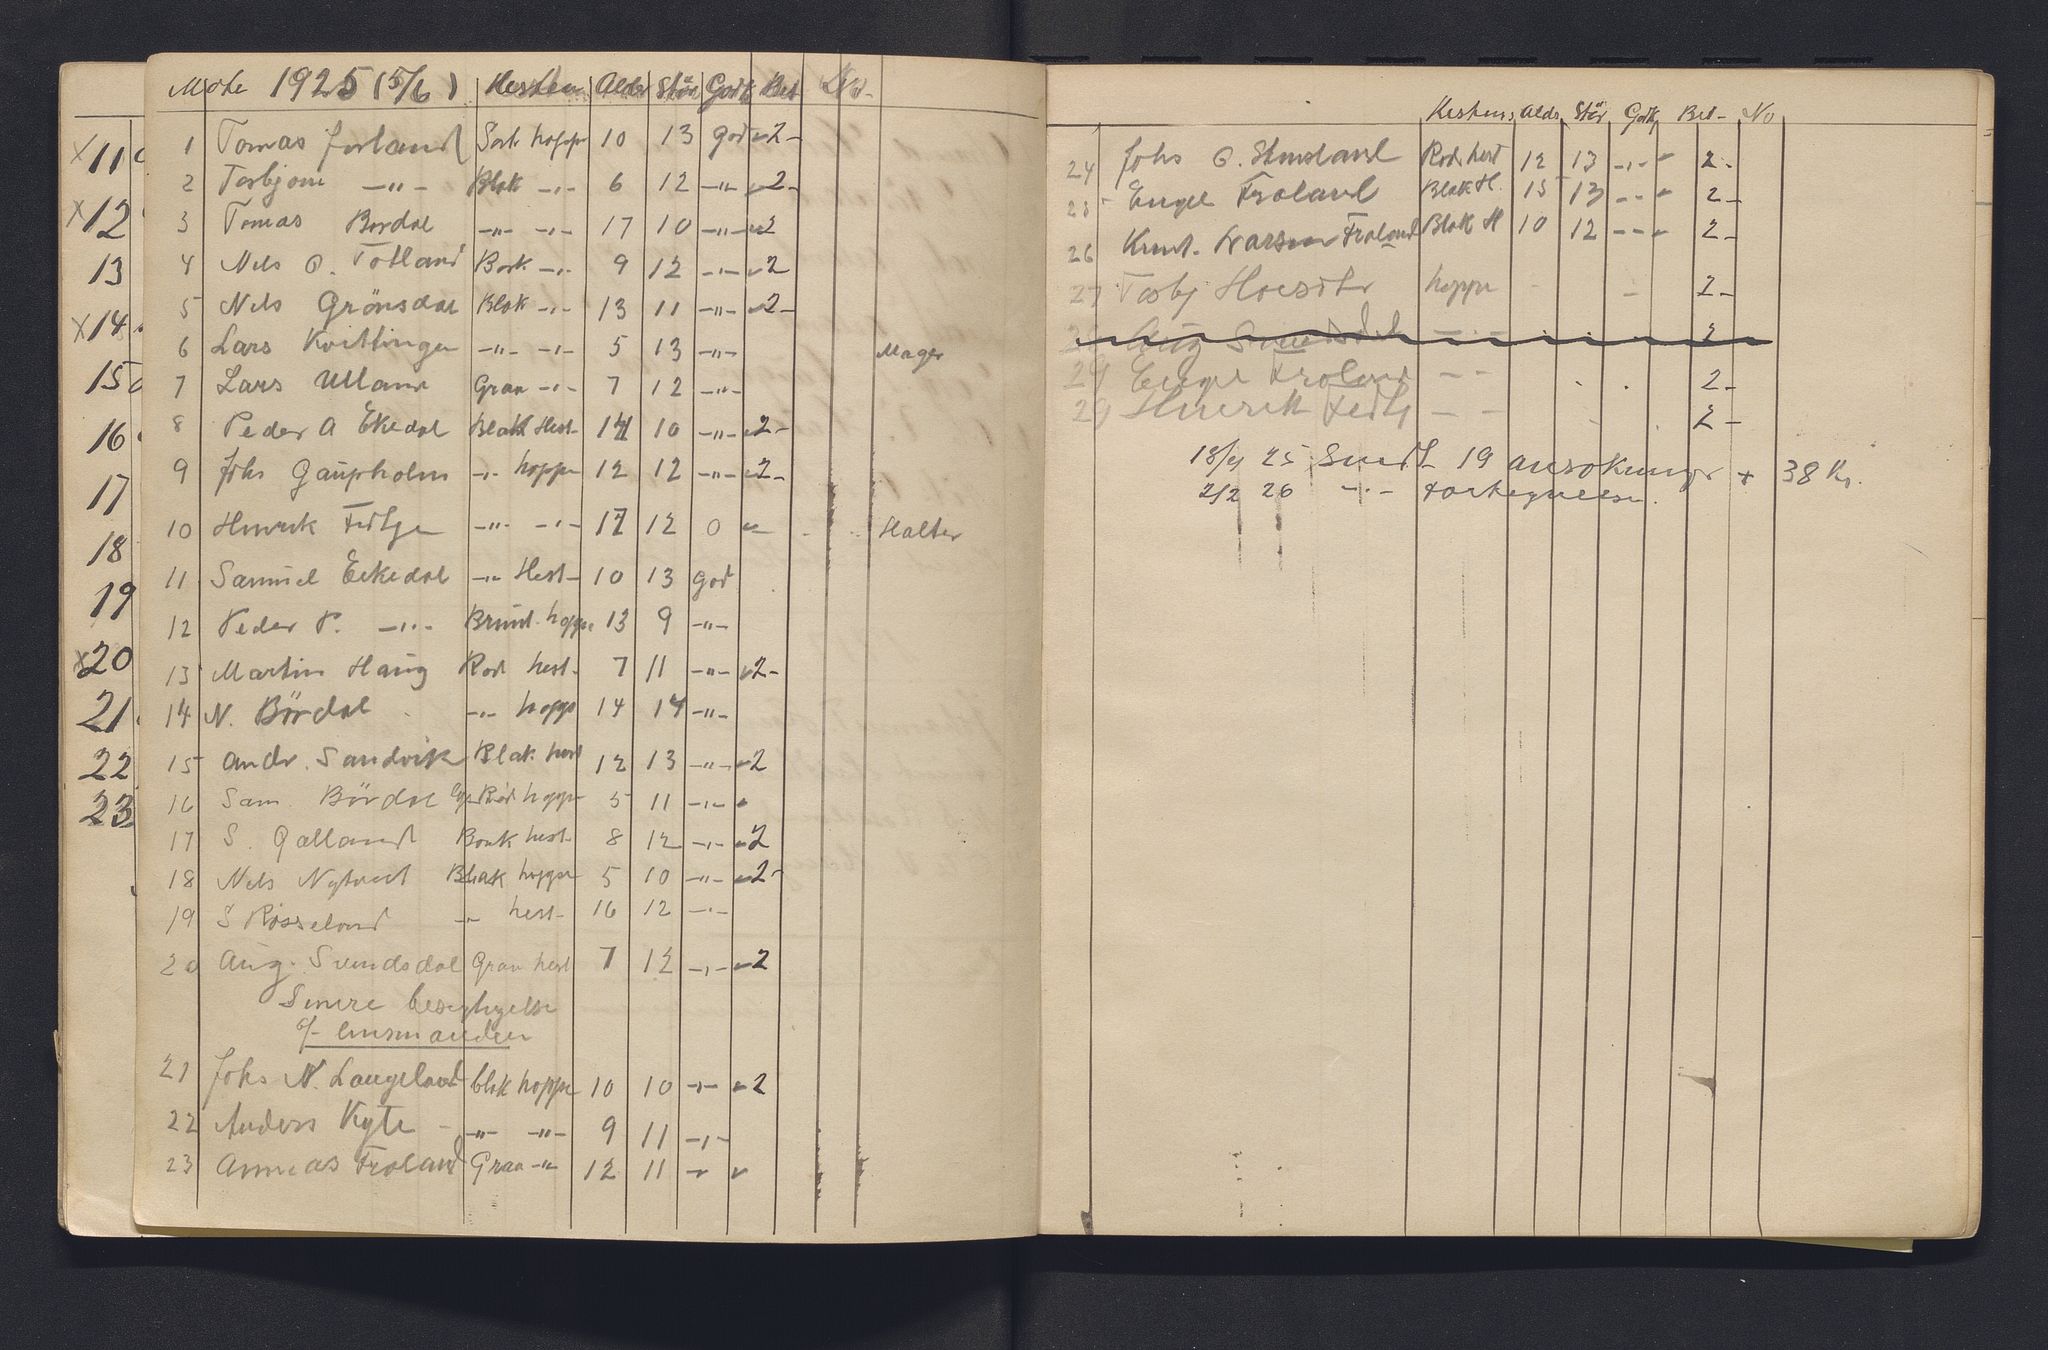 Møte 1925 (5/6) Hesten Alder Stör Godk Bet No
x11
x12
13
x14
15
16
17
18
19
x20
21
22
23
1 Tomas Forland Sort hoppe 10 13 god 2-
2 Torbjorn -"- Blak -"- 6 12 -"- 2-
3 Tomas Bordal -"- -"- 17 10 -"- 2
4 Nels O. Totland Bork -"- 9 12 -"- 2
5 Nels Grönsdal Blak -"- 13 11 -"- 2-
6 Lars Kvittingen -"- -"- 5 13 -"- Mager
7 Lars Ulland Graa -"- 7 12 -"-
8 Peder A Ekedal Blak Hest- 14 10 -"- 2-
9 Johs Gaupholm -"- hoppe 12 12 -"- 2-
10 Henrik -"- -"- 17 12 0 Halter
11 Samuel Eikedal -"- Hest- 10 13 god
12 Peder P. -"- Brunt hoppe 13 9 -"-
13 Martin Haug Rod hest- 7 11 -"- 2-
14 N. Bördal -"- hoppe 14 14 -"-
15 Andr. Sandvik Blak hest 12 13 -"- 2
16 Sam. Bördal Röd hoppe 5 11 -"-
17 S. Qalland Bork hest- 8 12 -"- 2
18 Nels Nytvedt Blak hoppe 5 10 -"- 2-
19 S Rosseland -"- hest- 16 12 -"-
20 Aug. Svendsdal Graa hest 7 12 -"- 2
Senere besigtigelse
af lensmanden
21 Johs N. Langeland blak hoppe 10 10 -"- 2
22 Anders Kyte -"- -"- 9 11 -"-
23 Anneas Froland Graa -"- 12 11
Hestens Alds Stör Godk Bet- No
24 Johs O. Rod hest 12 13 -"- 2-
25 Engel Froland Blak H. 15 13 2-
26 Knut Larsen Froland Blak H 10 12 2-
27 Torbj hoppe 2-
28 Aug Svendsdal 2
29 Engel Froland 2-
29 Henrik 2-
18/4 25 Sendt 19 ansökninger + 38 Kr.
2/2 26 -"- Fortegnelsen.